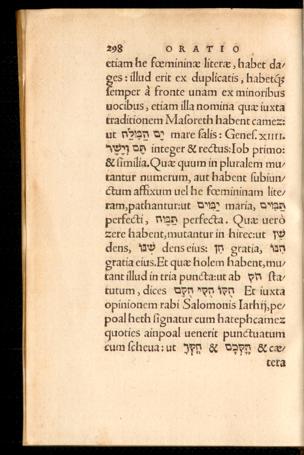 298 ORATIO
etiam he fœmininæ literæ, habet da/
ges: illud erit ex duplicatis, habetq́;
semper à fronte unam ex minoribus
uocibus, etiam illa nomina quæ iuxta
traditionem Masoreth habent camez:
ut mare salis: Genes. XIIII.
תָּם וְיָשָׁר integer & rectus: Iob primo:
& similia. Quæ quum in pluralem mu/
tantur numerum, aut habent subiun/
ctum affixum uel he fœmininam lite/
ram, pathantur: ut יַמִּים maria, תַּמִּים
perfecti, תַּמָּה perfecta. Quæ uerò
zere habent, mutantur in hirec: ut שֵׁן
dens, שִׁנּוֹ dens eius: חֵן gratia, חִנּוֹ
gratia eius. Et quæ holem habent, mu/
tant illud in tria puncta: ut ab חֹק sta/
tutum, dices Et iuxta
opinionem rabi Salomonis Iarhij, pe/
poal heth signatur cum hatephcamez
quoties ainpoal uenerit punctuatum
cum scheua: ut & & cæ/
tera